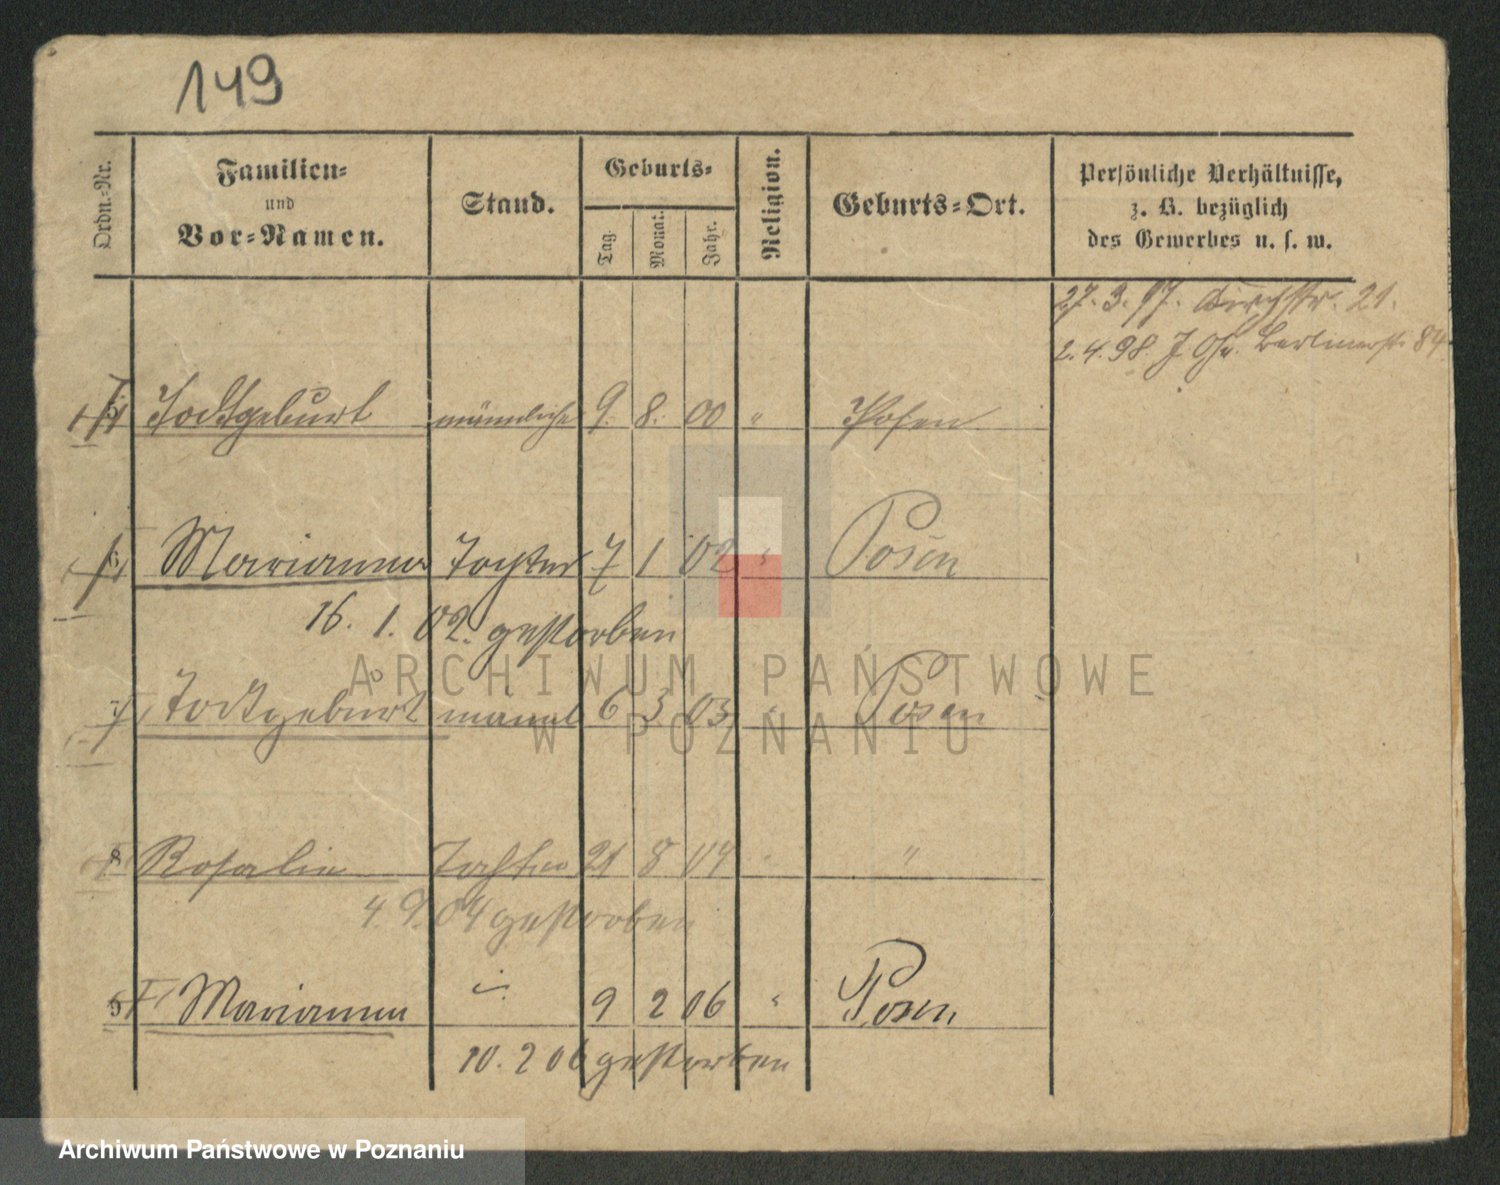 149
Ordn.-Nr.
Familien-
und
Vor-Namen.
Stand.
Geburts-
Tag.
Monat.
Jahr.
Religion.
Geburts-Ort.
Persönliche Verhältnisse,
z. B. bezüglich
des Gewerbes u. s. w.
27. 3. 97. Kirchstr. 21.
2. 4. 98. Berlinerstr 84
5 Todtgeburt männliche 9. 8. 00 " Posen
6 Marianna Tochter 7 1 02 " Posen
16. 1. 02. gestorben
7 Todtgeburt männl 6 3 03 " Posen
8 Rosalie Tochter 21 8 04 " "
4 9. 04 gestorben
9 Marianna 9 2 06 " Posen
10. 2 06 gestorben
ARCHIWUM PAŃSTWOWE
W POZNANIU
Archiwum Państwowe w Poznaniu